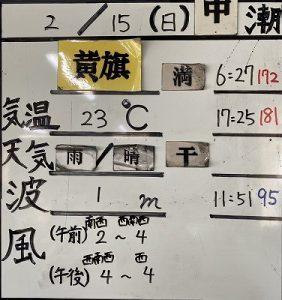 2 / 15 (日) 中 潮
黄旗 満 6:27 172
気温 23℃ 17:25 181
天気 雨/晴 干
波 1 m 11:51 95
風 (午前) 南西 2 ～ 西南西 4
(午後) 西南西 4 ～ 西 4